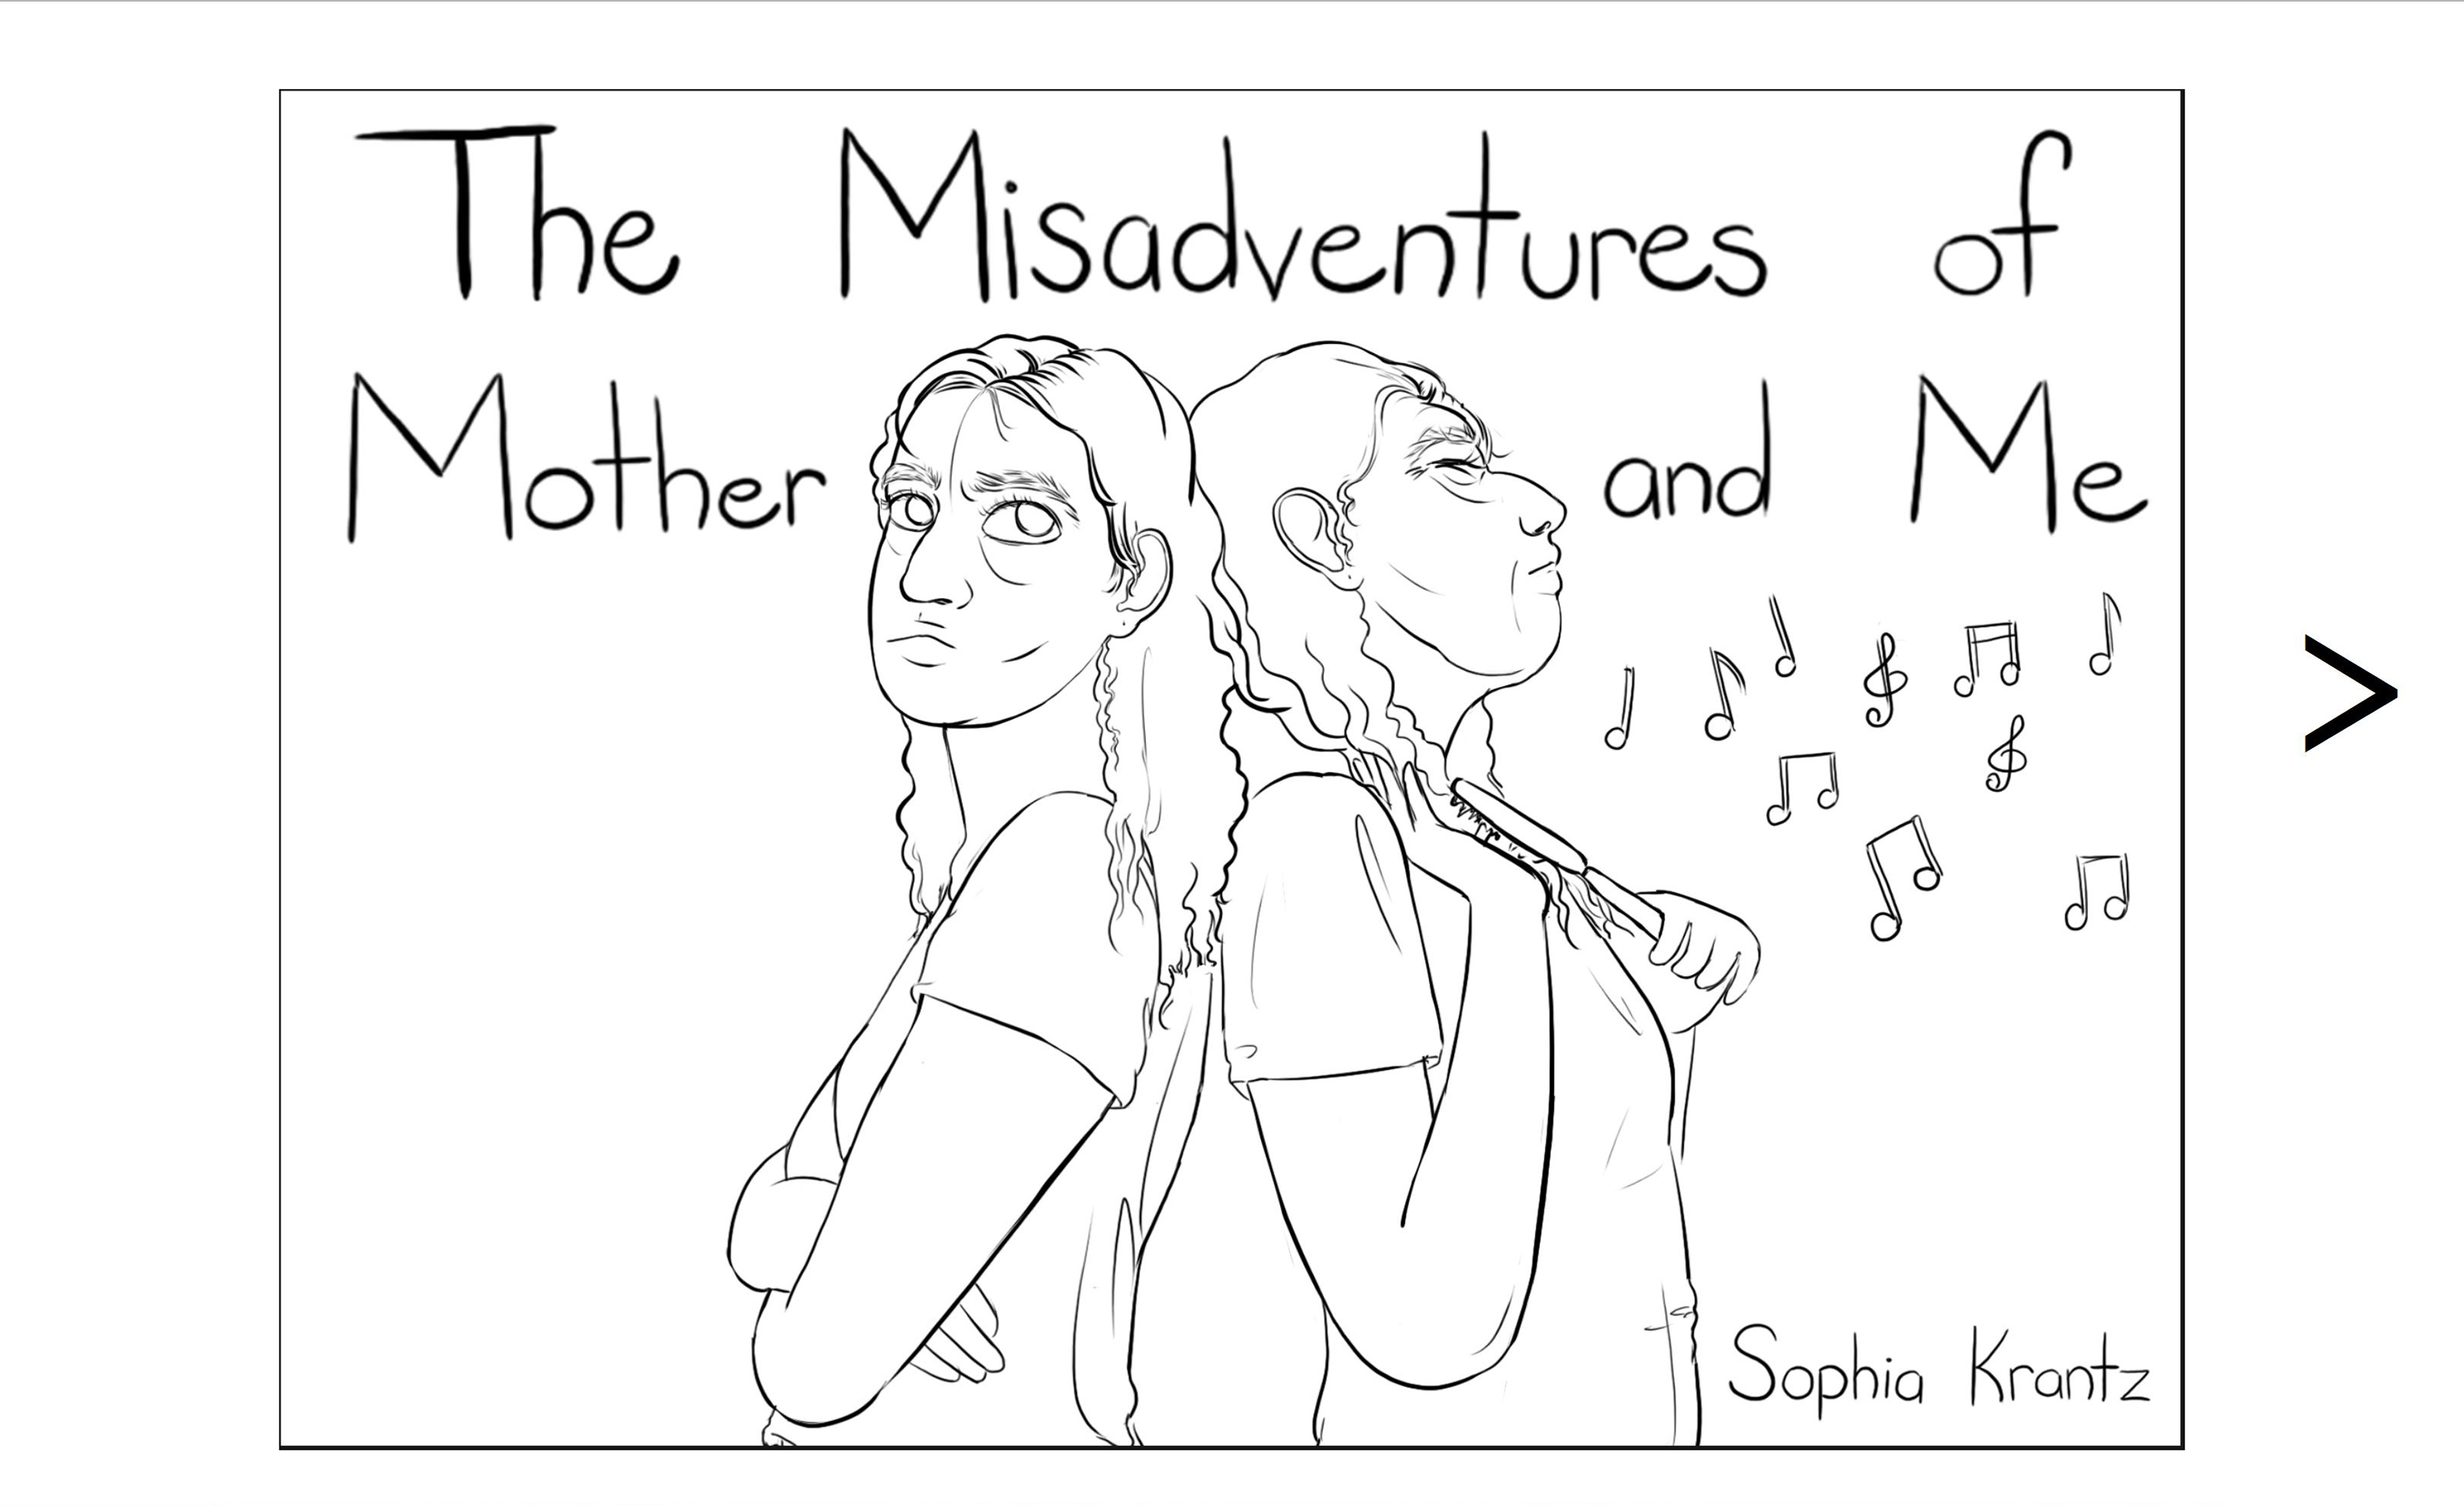 The Misadventures of
Mother and Me
Sophia Krantz
>